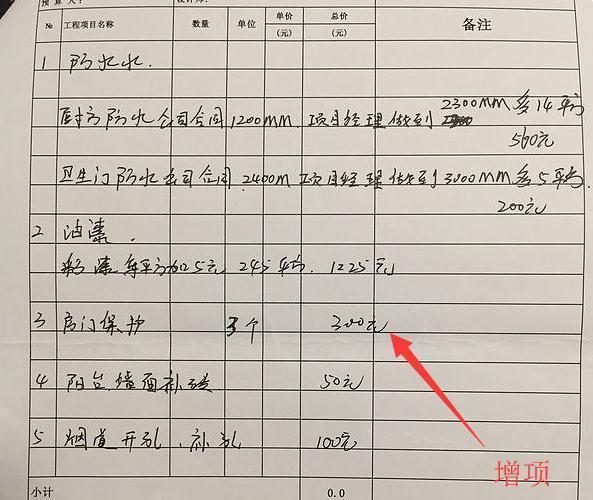 预算人：
设计师：
№ 工程项目名称 数量 单位 单价(元) 总价(元) 备注
1 防水水.
厨房防水公司合同1200MM.项目经理做到2300MM多14平方
560元
卫生门防水公司合同.2400m项目经理做到3000MM多5平方
200元
2 油漆.
彩漆每平方加25元 245平方. 1225元
3 房门保护 3个 300元
4 阳台.墙面补 50元
5 烟道开孔、补孔 100元
增项
小计 0.0